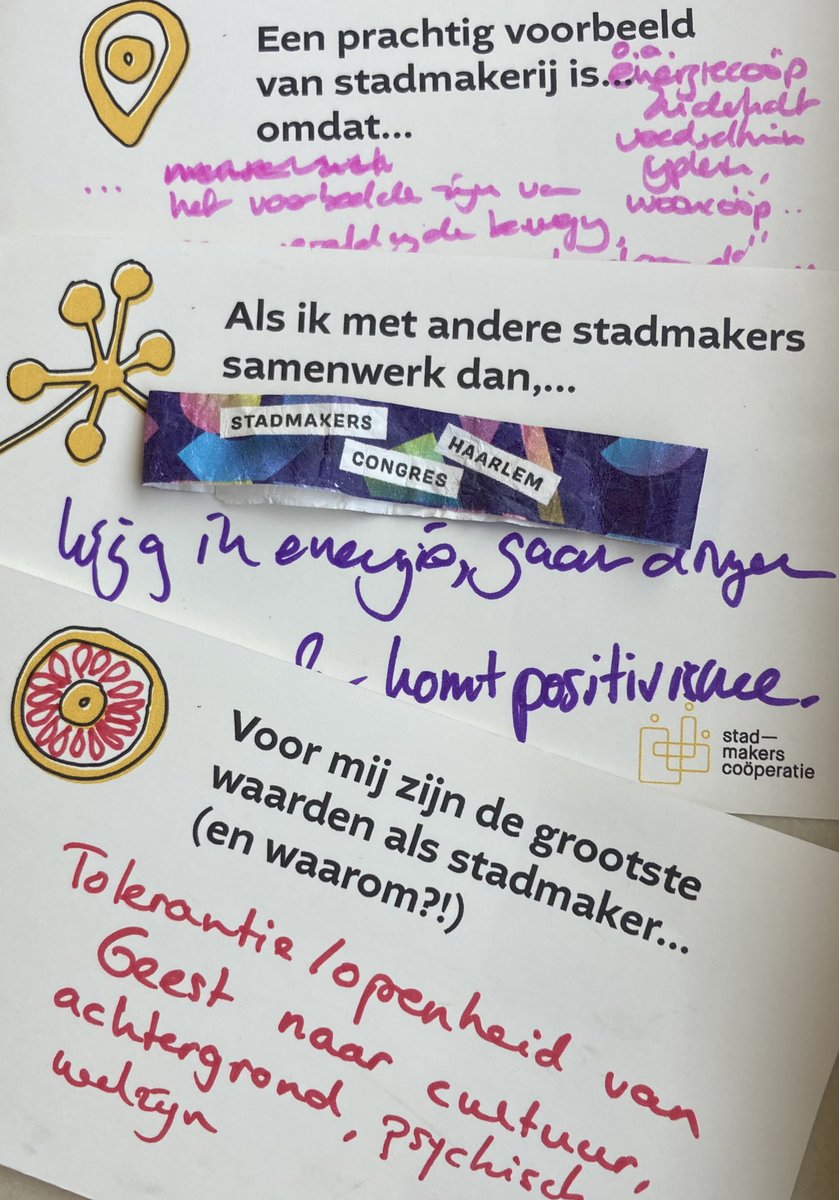 Een prachtig voorbeeld
van stadmakerij is...
omdat...
o.a.
energiecoöp
... het voorbeelde zijn van
wooncoöp...
Als ik met andere stadmakers
samenwerk dan,...
STADMAKERS
CONGRES
HAARLEM
krijg ik energie, gaan dingen
komt positivisme.
stad—
makers
coöperatie
Voor mij zijn de grootste
waarden als stadmaker...
(en waarom?!)
Tolerantie/openheid van
Geest naar cultuur,
achtergrond, psychisch
welzijn